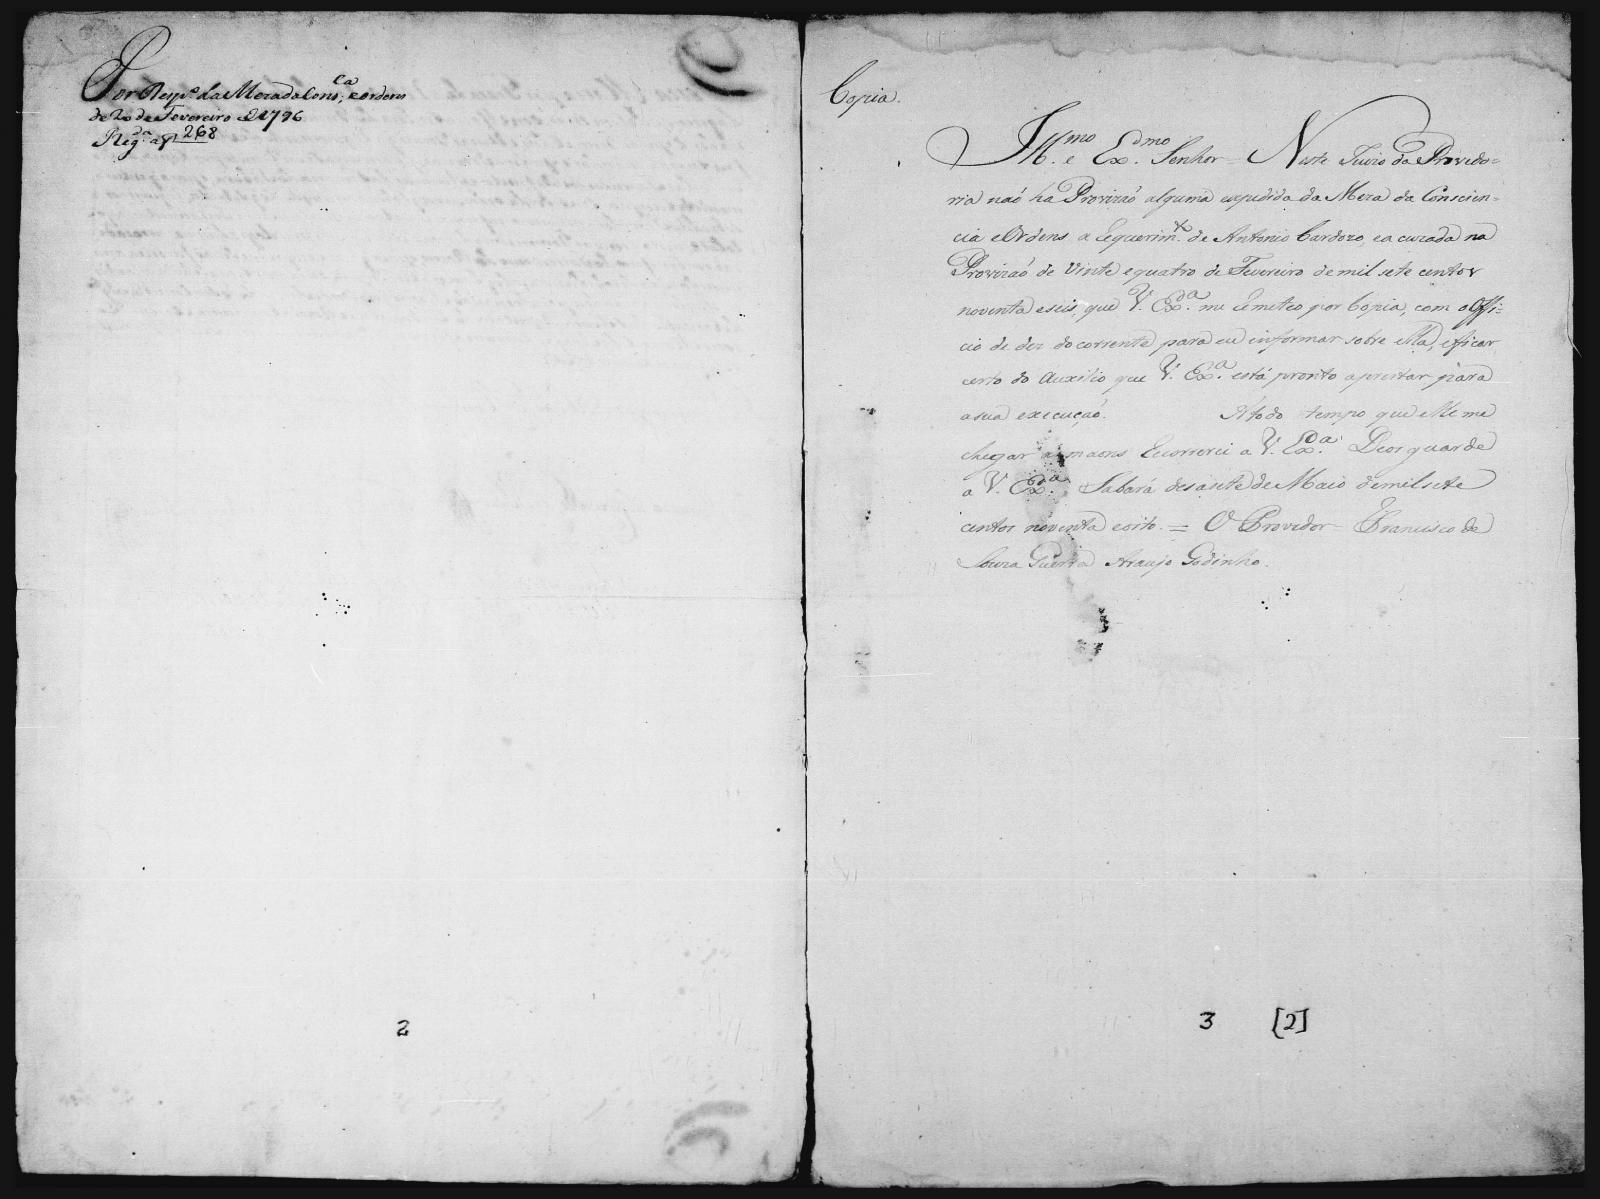 Por Resp.º da Meza da Cons.ca, e ordens
de 20 de Fevereiro de 1796
Reg.da a f 268
2
Copia.
Ill.mo e Ex.mo Senhor = Neste Juizo da Provedo=
ria naõ ha Provizaõ alguma expedida da Meza da Conscien=
cia e Ordens a Requerim.to de Antonio Cardozo, e a cuzada na
Provizaõ de vinte e quatro de Fevereiro de mil sete centos
noventa e seis, que V. Ex.a me Remeteo por Copia, com o Offi=
cio de dez do corrente para eu informar sobre ella, e ficar
certo do auxilio que V. Ex.a está pronto a prestar para
a sua execuçaõ. A todo tempo que Elle me
chegar as maons Recorrerei a V. Ex.a Deos guarde
a V. Ex.a Sabará desasete de Maio de mil sete
centos noventa e oito. = O Provedor = Francisco de
Souza Guerra Araujo Godinho.
3 [2]